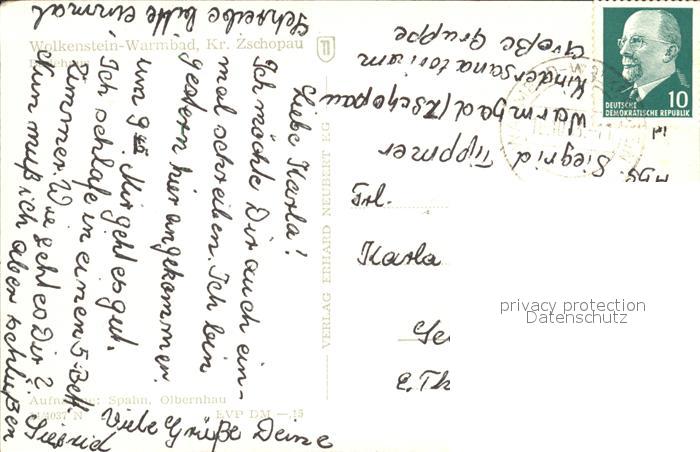 Wolkenstein-Warmbad, Kr. Zschopau
Liebe Karla!
Ich möchte Dir auch ein-
mal schreiben. Ich bin
gestern hier angekommen
um 9 Mir geht es gut.
Ich schlafe in einen 5-Bett
Zimmer. Wie geht es Dir?
Nun muß ich aber schließen
Viele Grüße Deine
Siegrid
Schreibe bitte einmal
Abs. Siegrid Tippmer
Warmbad/Zschopau
Kindersanatorium
Große Gruppe
Frl.
Karla
Ge
E.Th
DEUTSCHE
DEMOKRATISCHE REPUBLIK
10
VERLAG ERHARD NEUBERT KG
Aufnahme: Spahn, Olbernhau
EVP DM —,15
privacy protection
Datenschutz